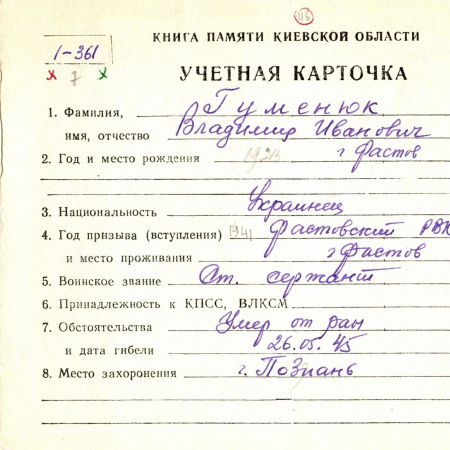 116
КНИГА ПАМЯТИ КИЕВСКОЙ ОБЛАСТИ
1-361
х 7 х
УЧЕТНАЯ КАРТОЧКА
1. Фамилия, Гуменюк
имя, отчество Владимир Иванович
2. Год и место рождения 1923 г Фастов
3. Национальность Украинец
4. Год призыва (вступления) 1941 Фастовский РВК
и место проживания г Фастов
5. Воинское звание Ст. сержант
6. Принадлежность к КПСС, ВЛКСМ
7. Обстоятельства Умер от ран
и дата гибели 26.05.45
8. Место захоронения г. Познань